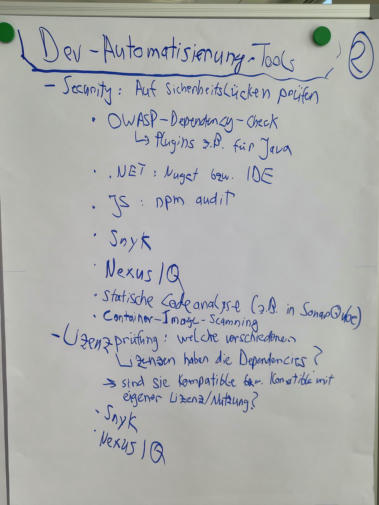 Dev-Automatisierung-Tools
2
- Security: Auf Sicherheitslücken prüfen
• OWASP-Dependency-Check
↳ Plugins z.B. für Java
• .NET: Nuget bzw. IDE
• JS: npm audit
• Snyk
• Nexus IQ
• statische Codeanalyse (z.B. in SonarQube)
• Container-Image-Scanning
- Lizenzprüfung: welche verschiedenen
Lizenzen haben die Dependencies?
→ sind sie kompatible bzw. kompatible mit
eigener Lizenz/Nutzung?
• Snyk
• Nexus IQ